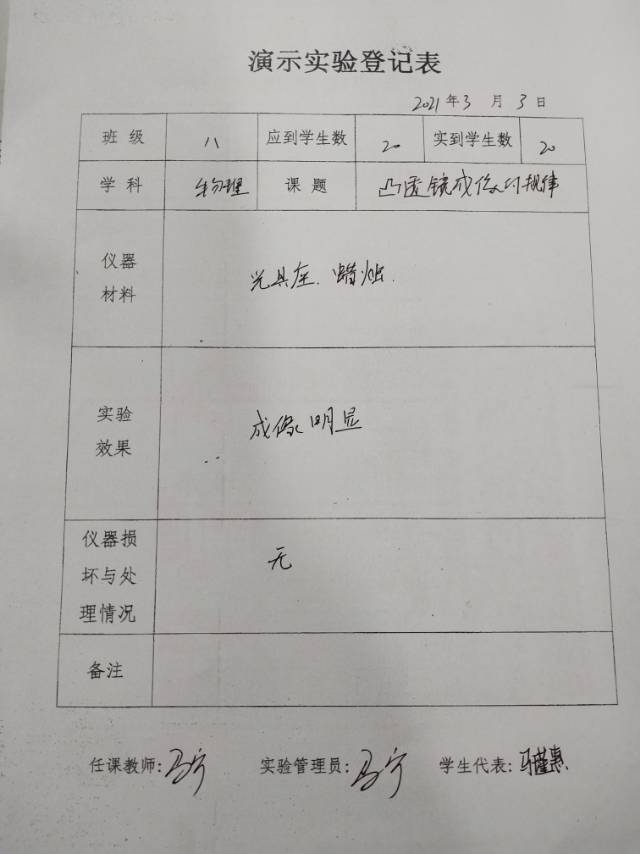 演示实验登记表
2021年3月3日
班级 八 应到学生数 20 实到学生数 20
学科 物理 课题 凸透镜成像的规律
仪器
材料
光具座、蜡烛.
实验
效果
成像明显
仪器损
坏与处
理情况
无
备注
任课教师:马宁 实验管理员:马宁 学生代表:马瑾惠